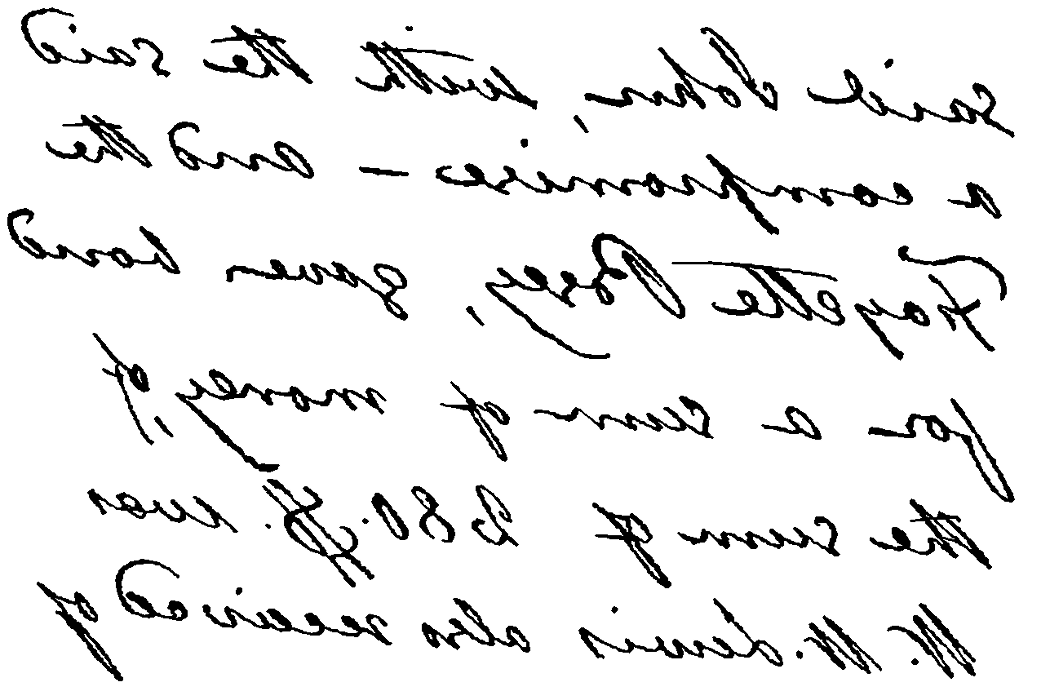 said John, with the said
a compromise — and the
Fayette Posey, gaven bond
for a sum of money, of
the sum of 280.$. was
W. W. Lewis also received of